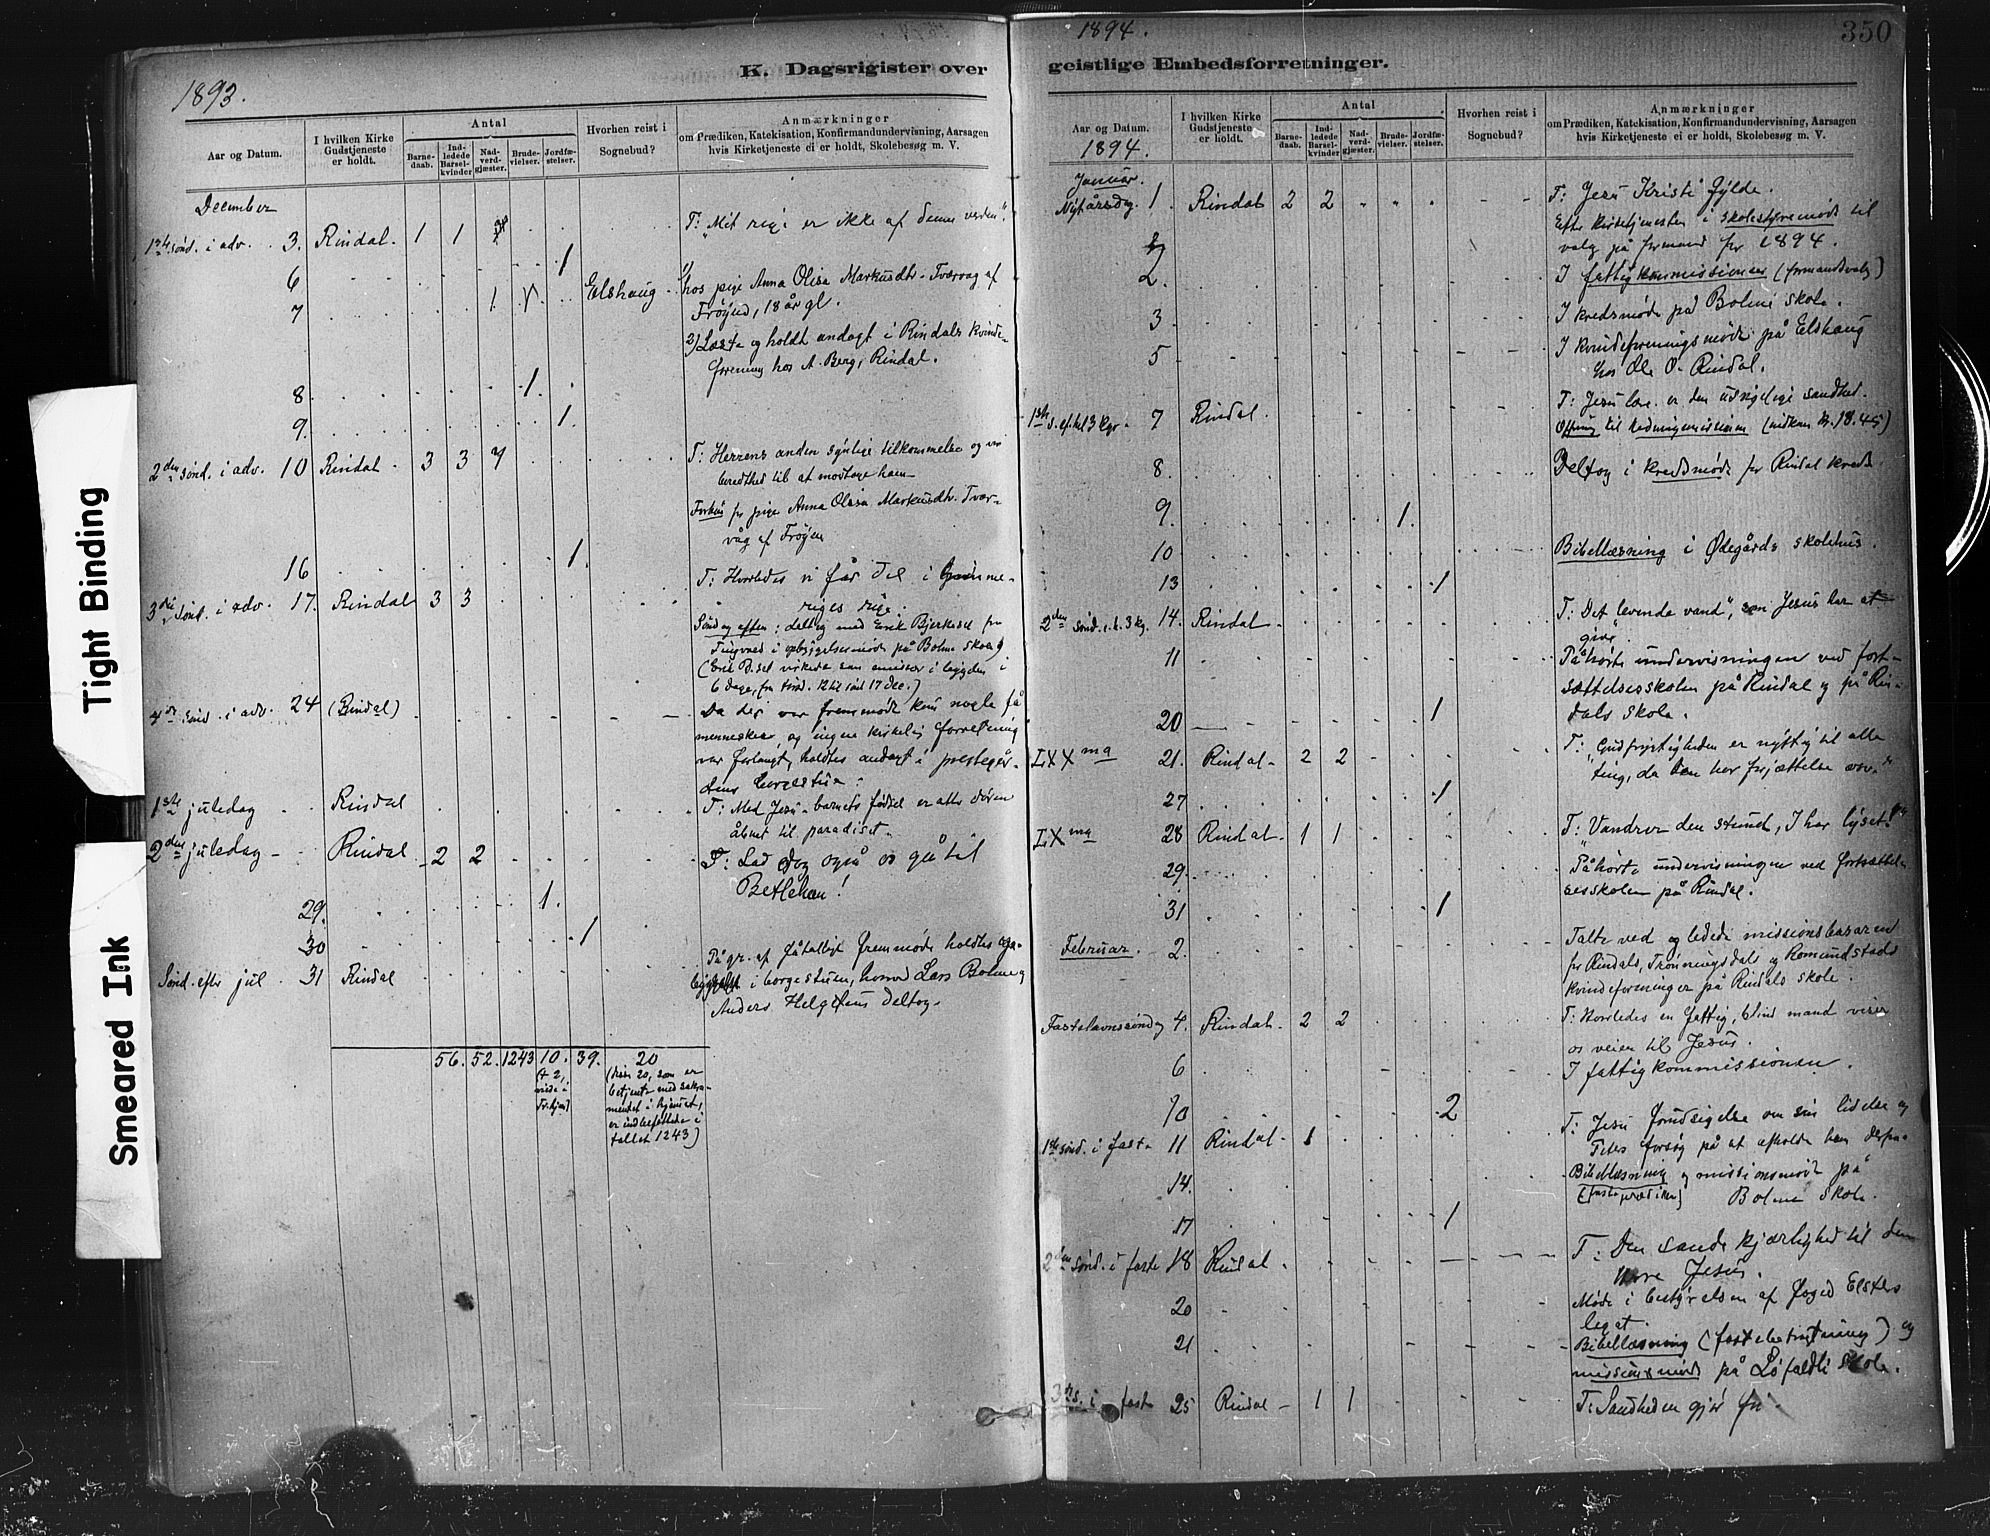 1893.
K. Dagsrigister over
Aar og Datum.
I hvilken Kirke Gudstjeneste er holdt.
Antal
Barne-daab.
Ind-ledede Barsel-kvinder
Nad-verd-gjæster.
Brude-vielser.
Jordfæ-stelser.
Hvorhen reist i Sognebud?
Anmærkninger
om Prædiken, Katekisation, Konfirmandundervisning, Aarsagen
hvis Kirketjeneste ei er holdt, Skolebesøg m. V.
December
1ste sønd. i adv. 3. Rindal. 1 1
T: "Mit rige er ikke af denne verden".
6 1
7 1 Elshaug 1) hos pige Anna Olisa Markusdtr. Tværvag af
Frøyen, 18 år gl.
2) Læste og holdt andagt i Rindals kvinde-
forening hos A. Berg, Rindal.
8. 1.
9. 1.
2den sønd. i adv. 10 Rindal. 3 3 4
T: Herrens anden synlige tilkommelse og vor
beredthed til at modtage ham
for pige Anna Olisa Markusdtr. Tvær-
våg af Frøyen
16 1.
3die sønd. i adv. 17. Rindal 3 3
T: Hvorledes vi får del i Himme-
riges rige.
Søndag efter: deltog med Erik Bjerkeset fra
Tingvold i opbyggelsesmøde på Bolme skole
(Erik B.set virkede som emissær i bygden i
6 dage, fra tirsd. 12 til sønd 17 dec.)
4de sønd. i adv. 24 (Rindal)
Da der var fremmødt kun nogle få
mennesker og ingen kirkelig forretning
var forlangt, holdtes andagt i prestegår-
dens borgestue.
1ste juledag Rindal
T: Med Jesu-barnets fødsel er atter døren
åbnet til paradiset.
2den juledag Rindal 2 2
T: Lad og også os gå til
Betlehem!
29. 1.
30 1
Sønd. efter jul. 31 Rindal
På gr. af fåtalligt fremmøde holdtes
i borgestuen, hvorved Lars Bolme og
Anders Helgetun deltog.
56. 52. 1243 10. 39. 20
(+ 2, viede i
(disse 20, som er
betjente med sakra-
mentet i hjemmet,
er indbefattede i
tallet 1243)
1894.
350
geistlige Embedsforretninger.
Aar og Datum.
1894.
I hvilken Kirke Gudstjeneste er holdt.
Antal
Barne-daab.
Ind-ledede Barsel-kvinder
Nad-verd-gjæster.
Brude-vielser.
Jordfæ-stelser.
Hvorhen reist i Sognebud?
Anmærkninger
om Prædiken, Katekisation, Konfirmandundervisning, Aarsagen
hvis Kirketjeneste ei er holdt, Skolebesøg m. V.
Januar.
Nytårsdag. 1. Rindal 2 2
T: Jesu Kristi fylde.
Efter kirketjenesten i skolestyremøde til
valg på formand for 1894.
2. I fattigkommissionen (formandsvalg)
3 I kredsmøde på Bolme skole.
5 I kvindeforeningsmøde på Elshaug
hos Ole O. Rindal.
1ste s. ef. hel. 3 kgr. 7 Rindal.
T: Jesu lære er den usvigelige sandhed.
Offring til hedningemissionen (indkom kr. 18.45)
8. Deltog i kredsmøde for Rindal kreds.
9. 1.
10 Bibellæsning i Ødegårds skolehus.
13 1
2den sønd. e. h. 3 kg. 14. Rindal
T: "Det levende vand", som Jesus har at
give.
11 Påhørte undervisningen ved fort-
sættelsesskolen på Rindal og på Rin-
dals skole.
20 1
LXXma 21. Rindal 2 2
T: "Gudfrygtigheden er nyttig til alle
ting, da den har forjættelse osv."
27 1
LXma 28 Rindal 1 1
T: "Vandrer den stund, I har lyset!"
29. Påhørte undervisningen ved fortsættel-
sesskolen på Rindal.
31 1
Februar. 2. Talte ved og ledede missionsbasaren
for Rindals, Trønningsdals og Romundstads
kvindeforeninger på Rindals skole.
Fastelavnssøndag 4. Rindal 2 2
T: Hvorledes en fattig, blind mand viser
os veien til Jesus.
6 I fattigkommissionen.
10 2
1ste sønd. i faste 11 Rindal 1
T: Jesu forudsigelse om sin lidelse og
forsøg på at afholde ham
14. Bibellæsning og missionsmøde på
(fasteprædiken) Bolme skole.
17 1
2den sønd. i faste 18 Rindal.
T: Den sande kjærlighed til den
Herre Jesus.
20 Møde i bestyrelsen af foged Elsters
legat.
21 Bibellæsning (fastebetragtning) og
missionsmøde på Løfaldli skole.
3die s. i faste 25 Rindal 1 1
T: Sandheden gjør fri.
Tight Binding
Smeared Ink